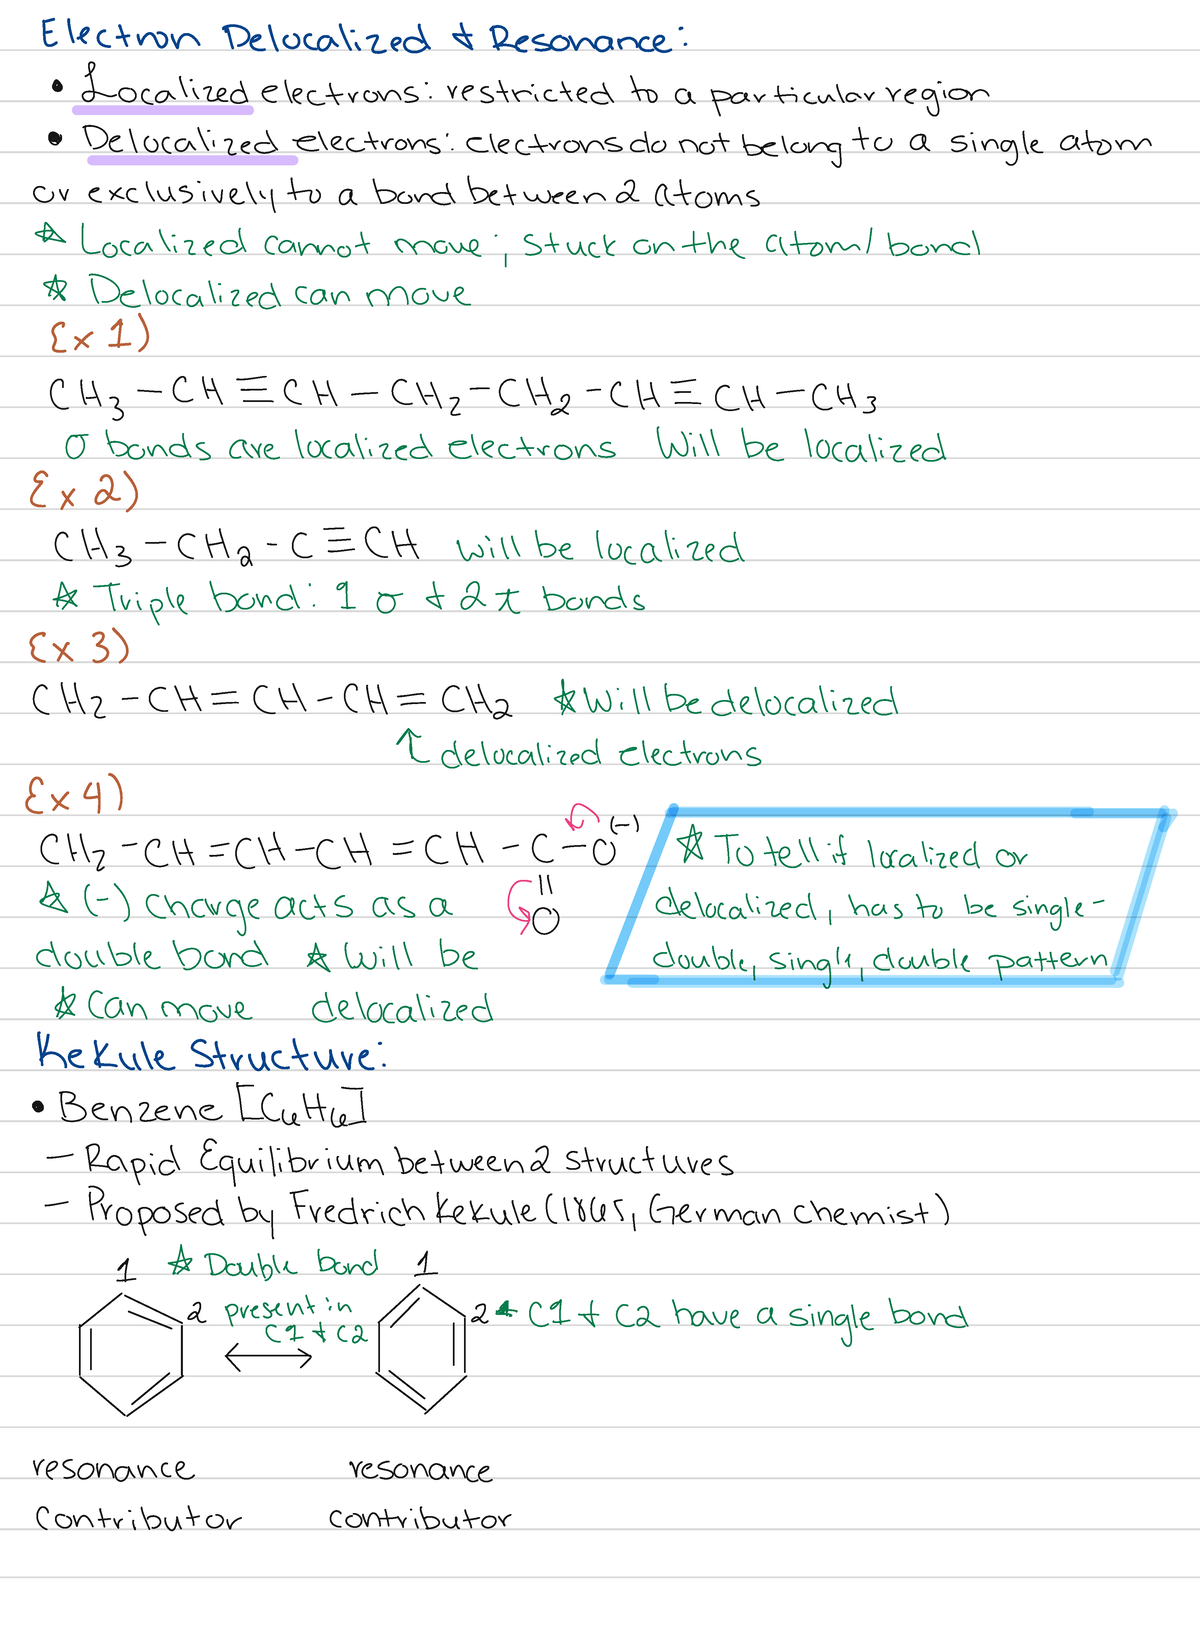 Electron Delocalized & Resonance:
• Localized electrons: restricted to a particular region
• Delocalized electrons: electrons do not belong to a single atom
or exclusively to a bond between 2 atoms
☆ Localized cannot move; stuck on the atom/bond
☆ Delocalized can move
Ex 1)
CH₃-CH≡CH-CH₂-CH₂-CH≡CH-CH₃
σ bonds are localized electrons Will be localized
Ex 2)
CH₃-CH₂-C≡CH will be localized
☆ Triple bond: 1 σ & 2 π bonds
Ex 3)
CH₂-CH=CH-CH=CH₂ ☆ Will be delocalized
↑ delocalized electrons
Ex 4)
CH₂-CH=CH-CH=CH-C-O(-)
||
O
☆ (-) charge acts as a
double bond ☆ Will be
☆ Can move delocalized
☆ To tell if localized or
delocalized, has to be single-
double, single, double pattern
Kekule Structure:
• Benzene [C₆H₆]
- Rapid Equilibrium between 2 structures
- Proposed by Fredrich Kekule (1865, German chemist)
1 ☆ Double bond 1
2 present in 2 ☆ C1 & C2 have a single bond
C1 & C2
⟷
resonance resonance
contributor contributor